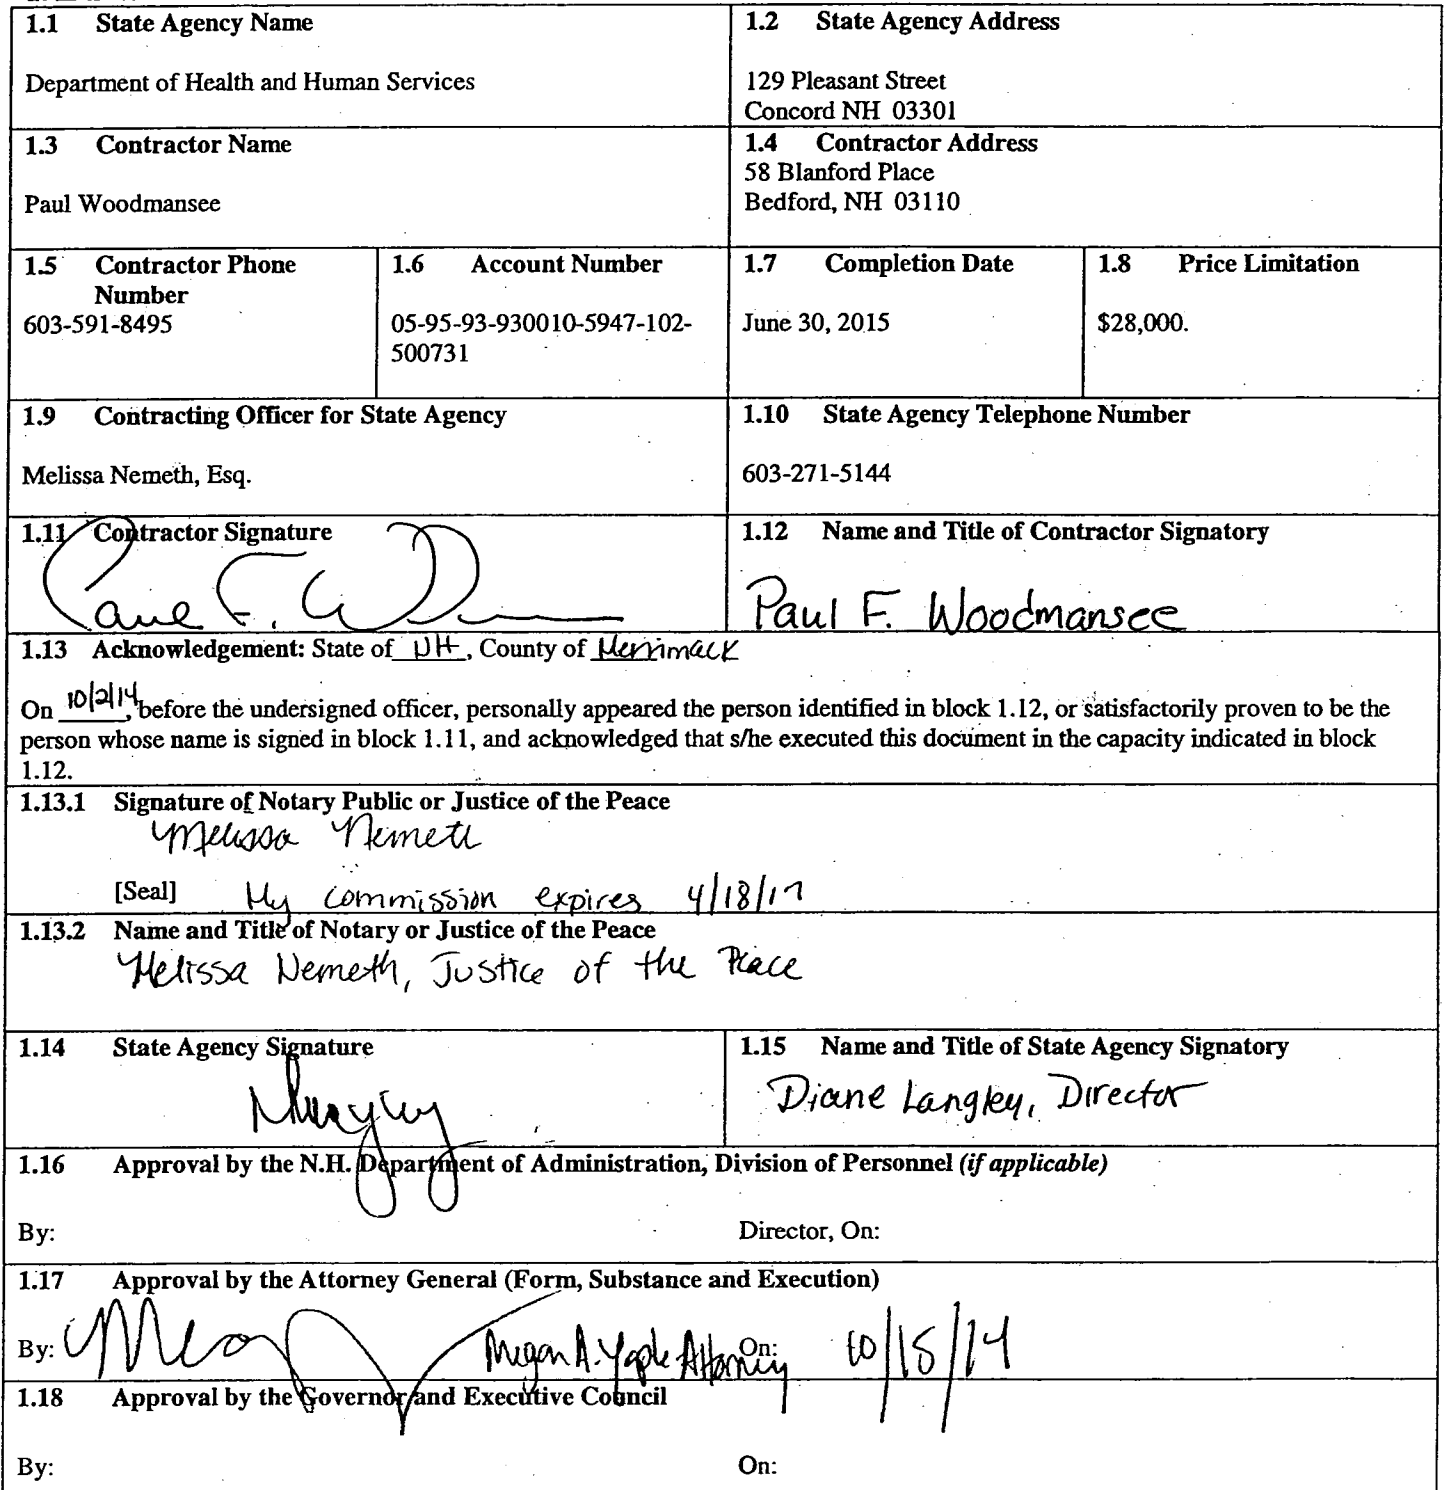 1.1 State Agency Name
Department of Health and Human Services
1.2 State Agency Address
129 Pleasant Street
Concord NH 03301
1.3 Contractor Name
Paul Woodmansee
1.4 Contractor Address
58 Blanford Place
Bedford, NH 03110
1.5 Contractor Phone
Number
603-591-8495
1.6 Account Number
05-95-93-930010-5947-102-
500731
1.7 Completion Date
June 30, 2015
1.8 Price Limitation
$28,000.
1.9 Contracting Officer for State Agency
Melissa Nemeth, Esq.
1.10 State Agency Telephone Number
603-271-5144
1.11 Contractor Signature
1.12 Name and Title of Contractor Signatory
Paul F. Woodmansee
1.13 Acknowledgement: State of NH, County of Merrimack
On 10/2/14, before the undersigned officer, personally appeared the person identified in block 1.12, or satisfactorily proven to be the
person whose name is signed in block 1.11, and acknowledged that s/he executed this document in the capacity indicated in block
1.12.
1.13.1 Signature of Notary Public or Justice of the Peace
Melissa Nemeth
[Seal] My commission expires 4/18/17
1.13.2 Name and Title of Notary or Justice of the Peace
Melissa Nemeth, Justice of the Peace
1.14 State Agency Signature
1.15 Name and Title of State Agency Signatory
Diane Langley, Director
1.16 Approval by the N.H. Department of Administration, Division of Personnel (if applicable)
By: Director, On:
1.17 Approval by the Attorney General (Form, Substance and Execution)
By: Megan A. Yaple Attorney On: 10/15/14
1.18 Approval by the Governor and Executive Council
By: On: